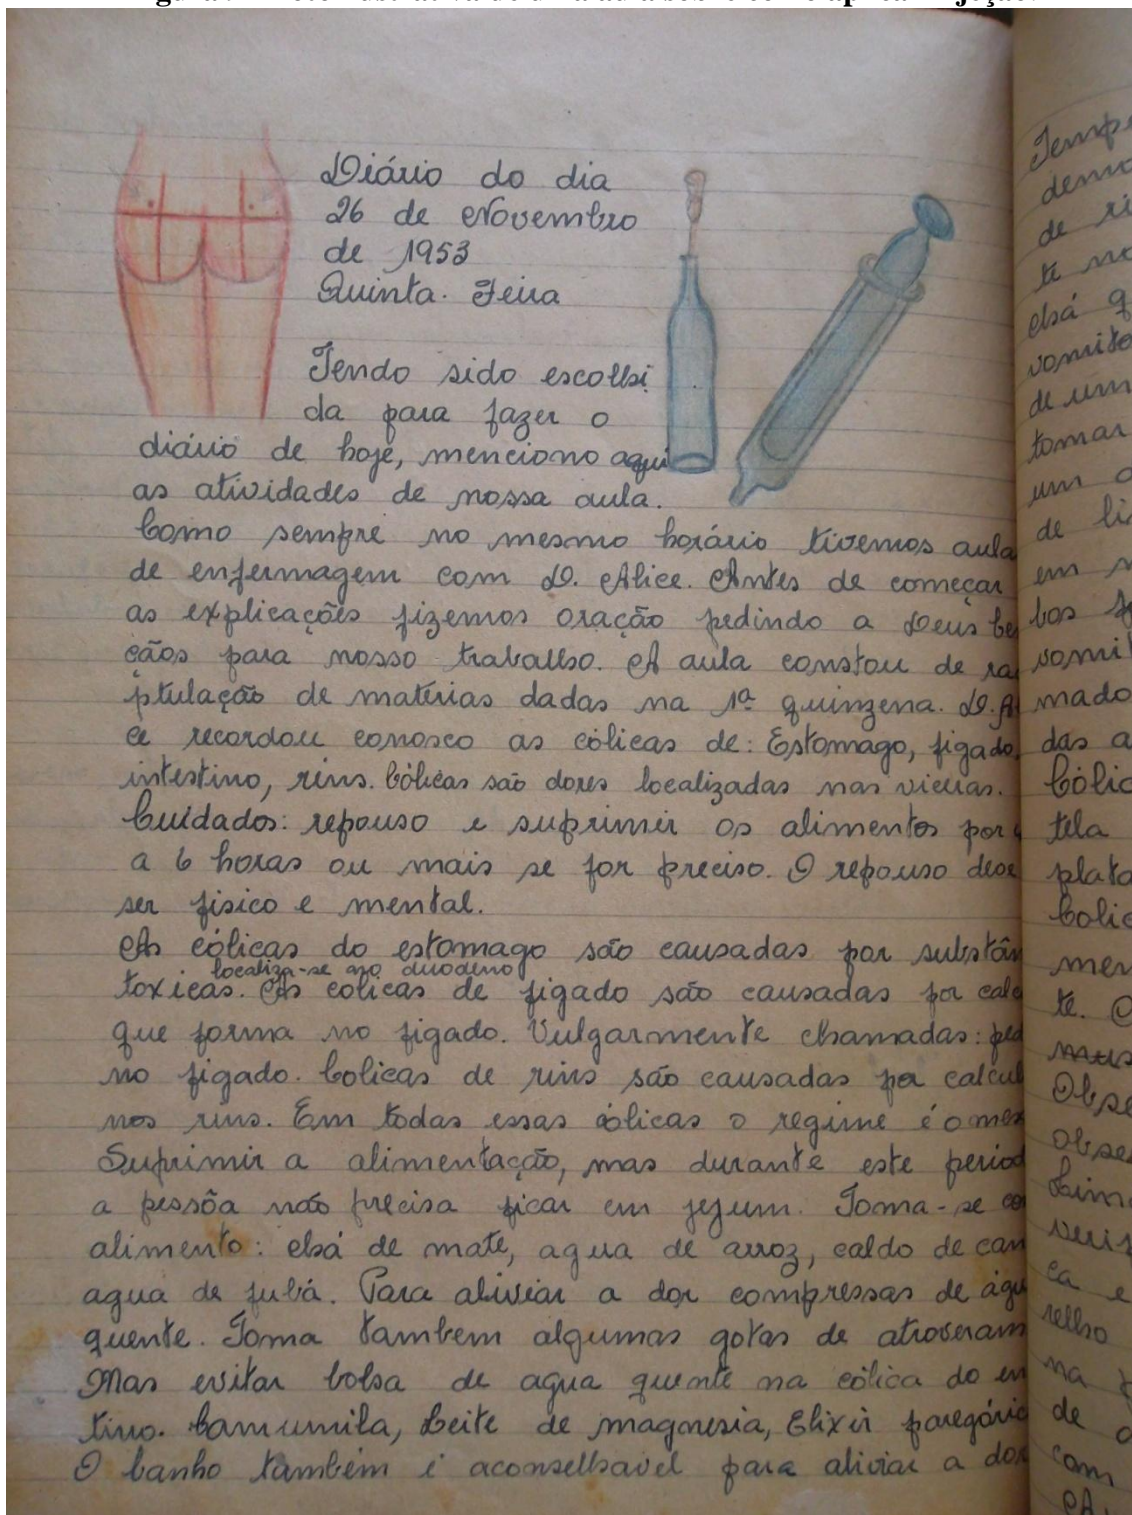 Diário do dia
26 de Novembro
de 1953
Quinta-Feira
Tendo sido escolhi
da para fazer o
diário de hoje, menciono aqui
as atividades de nossa aula.
Como sempre no mesmo horário tivemos aula
de enfermagem com D. Alice. Antes de começar
as explicações fizemos oração pedindo a Deus be
çãos para nosso trabalho. A aula constou de ra
ptulação de matérias dadas na 1ª quinzena. D. A
ce recordou conosco as cólicas de: Estomago, figado,
intestino, rins. Cólicas são dores localizadas nas
Cuidados: repouso e suprimir os alimentos por
a 6 horas ou mais se for preciso. O repouso deve
ser fisico e mental.
As cólicas do estomago são causadas por substân
localiza-se no duodeno
toxicas. As colicas de figado são causadas por calc
que forma no figado. Vulgarmente chamadas: ped
no figado. Colicas de rins são causadas por calcul
nos rins. Em todas essas cólicas o regime é o mes
Suprimir a alimentação, mas durante este period
a pessôa não precisa ficar em jejum. Toma-se co
alimento: chá de mate, agua de arroz, caldo de can
agua de fubá. Para aliviar a dor compressas de águ
quente. Toma tambem algumas gotas de atroveram
Mas evitar bolsa de agua quente na cólica do en
tino. Camumila, Leite de magnesia, Elixir paregóric
O banho também é aconselhavel para aliviar a dor
Tempe
demo
de
te
chá q
vomito
de um
tomar
um
de li
em
bos
vomit
mado
das a
Cólic
tela
plata
Colic
men
te. O
Obse
obse
ca e
na
de
com